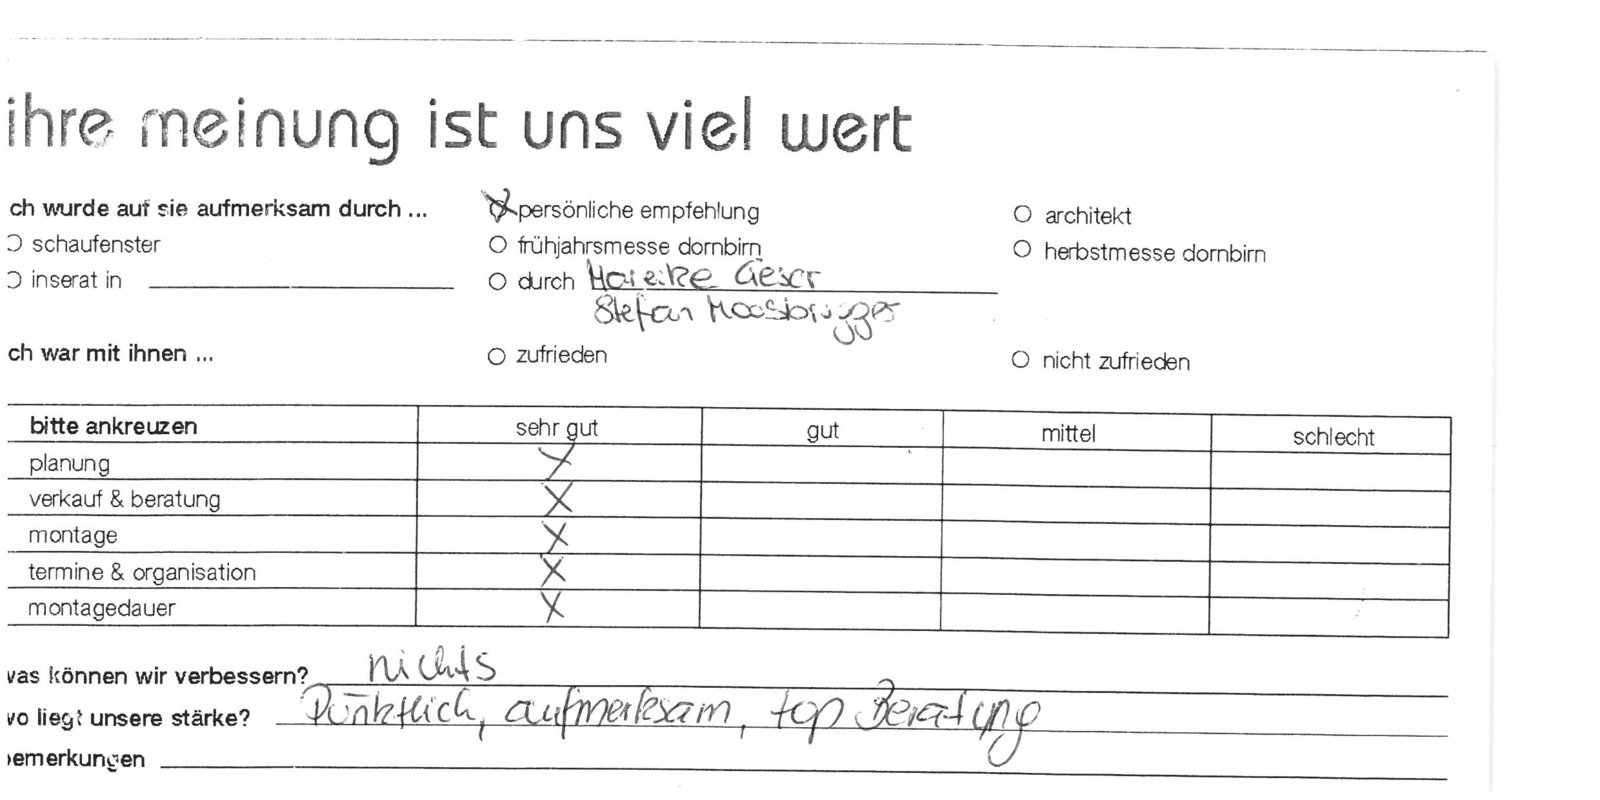 ihre meinung ist uns viel wert
ch wurde auf sie aufmerksam durch ... persönliche empfehlung architekt
schaufenster frühjahrsmesse dornbirn herbstmesse dornbirn
inserat in durch Mareike Gieser
Stefan Moosbrugger
ch war mit ihnen ... zufrieden nicht zufrieden
bitte ankreuzen sehr gut gut mittel schlecht
planung X
verkauf & beratung X
montage X
termine & organisation X
montagedauer X
was können wir verbessern? nichts
wo liegt unsere stärke? Pünktlich, aufmerksam, top Beratung
bemerkungen